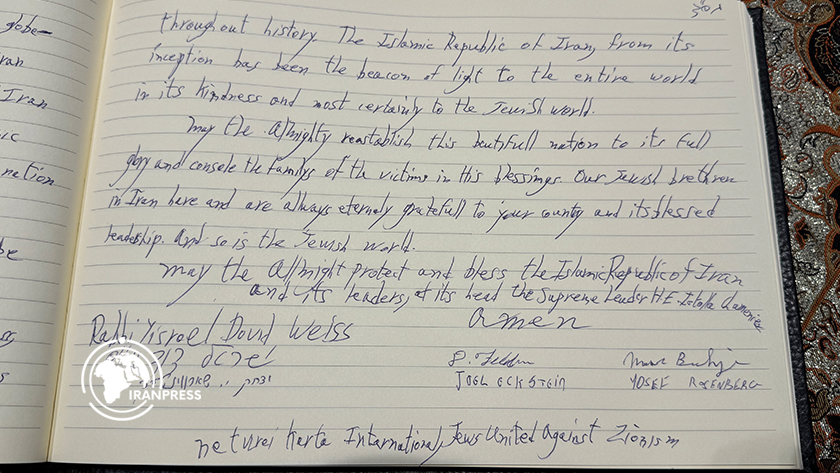 308
throughout history. The Islamic Republic of Iran, from its
inception has been the beacon of light to the entire world
in its kindness and most certainly to the Jewish world.
may the Almighty reastablish this beutifull nation to its full
glory and console the familys of the victims in His blessings. Our Jewish brethren
in Iran have and are always eternely gratefull to your county and its blessed
leadership. And so is the Jewish world.
may the Allmight protect and bless the Islamic Republic of Iran
and its leaders, at its head the Supreme Leader H.E.
amen
Rabbi Yisroel Dovid Weiss
ישראל דוד
JOEL ECKSTEIN YOSEF ROSENBERG
יצחק
neturei karta International, Jews United Against Zionism
globe
ran
Iran
ic
nation
be
s
IRANPRESS